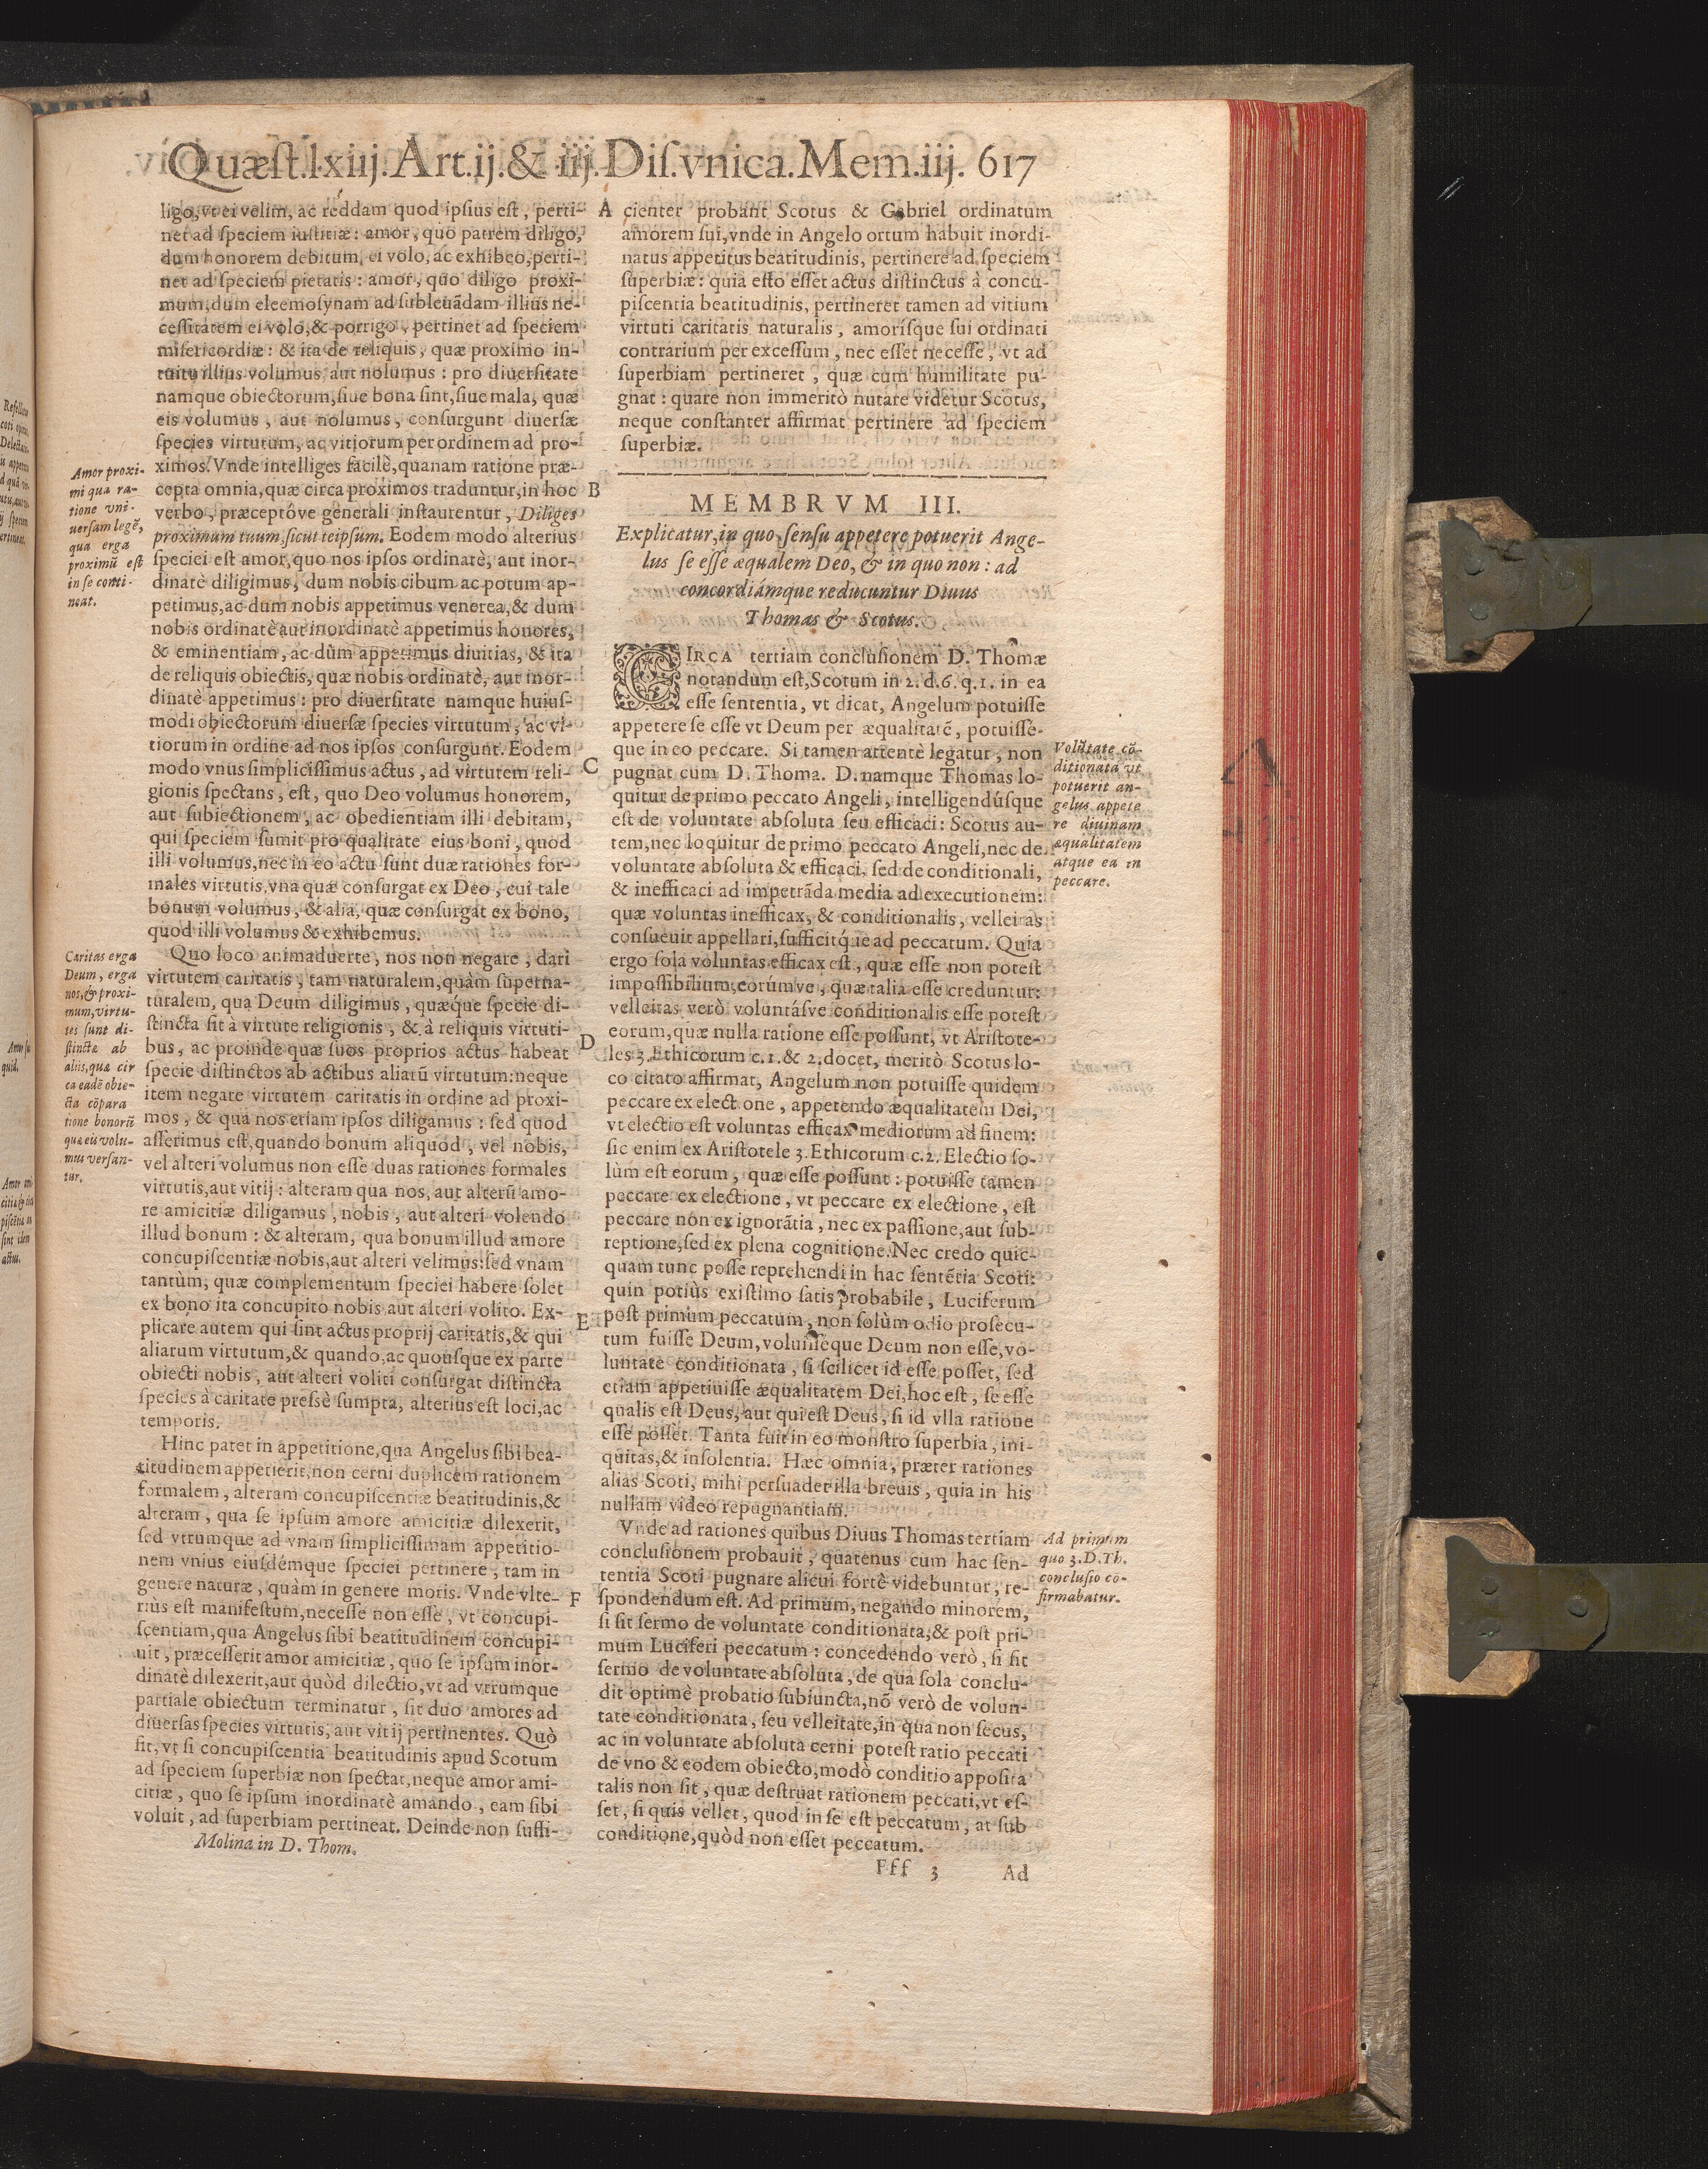 Quæſt.lxiij.Art.ij.& iij.Diſ.vnica.Mem.iij. 617
ligo, vt ei velim, ac reddam quod ipſius eſt, perti-
net ad ſpeciem iuſtitiæ: amor, quo patrem diligo,
dum honorem debitum, ei volo, ac exhibeo, perti-
net ad ſpeciem pietatis: amor, quo diligo proxi-
mum, dum eleemoſynam ad ſubleuãdam illius ne-
ceſſitatem ei volo, & porrigo, pertinet ad ſpeciem
miſericordiæ: & ita de reliquis, quæ proximo in-
tuitu illius volumus, aut nolumus: pro diuerſitate
namque obiectorum, ſiue bona ſint, ſiue mala, quæ
eis volumus, aut nolumus, conſurgunt diuerſæ
ſpecies virtutum, ac vitiorum per ordinem ad pro-
ximos. Vnde intelliges facilè, quanam ratione præ-
cepta omnia, quæ circa proximos traduntur, in hoc
verbo, præceptóve generali inſtaurentur, Diliges
proximum tuum, ſicut teipſum. Eodem modo alterius
ſpeciei eſt amor, quo nos ipſos ordinatè, aut inor-
dinatè diligimus, dum nobis cibum ac potum ap-
petimus, ac dum nobis appetimus venerea, & dum
nobis ordinatè aut inordinatè appetimus honores,
& eminentiam, ac dùm appetimus diuitias, & ita
de reliquis obiectis, quæ nobis ordinatè, aut inor-
dinatè appetimus: pro diuerſitate namque huiuſ-
modi obiectorum diuerſæ ſpecies virtutum, ac vi-
tiorum in ordine ad nos ipſos conſurgunt. Eodem
modo vnus ſimpliciſſimus actus, ad virtutem reli-
gionis ſpectans, eſt, quo Deo volumus honorem,
aut ſubiectionem, ac obedientiam illi debitam,
qui ſpeciem ſumit pro qualitate eius boni, quod
illi volumus, nec in eo actu ſunt duæ rationes for-
males virtutis, vna quæ conſurgat ex Deo, cui tale
bonum volumus, & alia, quæ conſurgat ex bono,
quod illi volumus & exhibemus.
Quo loco animaduerte, nos non negare, dari
virtutem caritatis, tam naturalem, quàm ſuperna-
turalem, qua Deum diligimus, quæq́ue ſpecie di-
ſtincta ſit à virtute religionis, & à reliquis virtuti-
bus, ac proinde quæ ſuos proprios actus habeat
ſpecie diſtinctos ab actibus aliarũ virtutum: neque
item negare virtutem caritatis in ordine ad proxi-
mos, & qua nos etiam ipſos diligamus: ſed quod
aſſerimus eſt, quando bonum aliquod, vel nobis,
vel alteri volumus non eſſe duas rationes formales
virtutis, aut vitij: alteram qua nos, aut alterũ amo-
re amicitiæ diligamus, nobis, aut alteri volendo
illud bonum: & alteram, qua bonum illud amore
concupiſcentiæ nobis, aut alteri velimus: ſed vnam
tantùm, quæ complementum ſpeciei habere ſolet
ex bono ita concupito nobis aut alteri volito. Ex-
plicare autem qui ſint actus proprij caritatis, & qui
aliarum virtutum, & quando, ac quouſque ex parte
obiecti nobis, aut alteri voliti conſurgat diſtincta
ſpecies à caritate preſsè ſumpta, alterius eſt loci, ac
temporis.
Hinc patet in appetitione, qua Angelus ſibi bea-
titudinem appetierit, non cerni duplicem rationem
formalem, alteram concupiſcentiæ beatitudinis, &
alteram, qua ſe ipſum amore amicitiæ dilexerit,
ſed vtrumque ad vnam ſimpliciſſimam appetitio-
nem vnius eiuſdémque ſpeciei pertinere, tam in
genere naturæ, quàm in genere moris. Vnde vlte-
riùs eſt manifeſtum, neceſſe non eſſe, vt concupi-
ſcentiam, qua Angelus ſibi beatitudinem concupi-
uit, præceſſerit amor amicitiæ, quo ſe ipſum inor-
dinatè dilexerit, aut quòd dilectio, vt ad vtrumque
partiale obiectum terminatur, ſit duo amores ad
diuerſas ſpecies virtutis, aut vitij pertinentes. Quò
fit, vt ſi concupiſcentia beatitudinis apud Scotum
ad ſpeciem ſuperbiæ non ſpectat, neque amor ami-
citiæ, quo ſe ipſum inordinatè amando, eam ſibi
voluit, ad ſuperbiam pertineat. Deinde non ſuffi-
Molina in D. Thom.
Amor proxi-
mi qua ra-
tione vni-
uerſam legẽ,
qua erga
proximũ eſt
in ſe conti-
neat.
Caritas erga
Deum, erga
nos, & proxi-
mum, virtu-
tes ſunt di-
ſtinctæ ab
aliis, quæ cir
ca eadẽ obie-
cta cõpara
tione bonorũ
quæ eis volu-
mus verſan-
tur.
A
B
C
D
E
F
cienter probant Scotus & Gabriel ordinatum
amorem ſui, vnde in Angelo ortum habuit inordi-
natus appetitus beatitudinis, pertinere ad ſpeciem
ſuperbiæ: quia eſto eſſet actus diſtinctus à concu-
piſcentia beatitudinis, pertineret tamen ad vitium
virtuti caritatis naturalis, amoríſque ſui ordinati
contrarium per exceſſum, nec eſſet neceſſe, vt ad
ſuperbiam pertineret, quæ cum humilitate pu-
gnat: quare non immeritò nutare videtur Scotus,
neque conſtanter affirmat pertinere ad ſpeciem
ſuperbiæ.
MEMBRVM III.
Explicatur, in quo ſenſu appetere potuerit Ange-
lus ſe eſſe æqualem Deo, & in quo non: ad
concordiámque reducuntur Diuus
Thomas & Scotus.
CIRCA tertiam concluſionem D. Thomæ
notandum eſt, Scotum in 2. d. 6. q. 1. in ea
eſſe ſententia, vt dicat, Angelum potuiſſe
appetere ſe eſſe vt Deum per æqualitatẽ, potuiſſé-
que in eo peccare. Si tamen attentè legatur, non
pugnat cum D. Thoma. D. namque Thomas lo-
quitur de primo peccato Angeli, intelligendúſque
eſt de voluntate abſoluta ſeu efficaci: Scotus au-
tem, nec loquitur de primo peccato Angeli, nec de
voluntate abſoluta & efficaci, ſed de conditionali,
& inefficaci ad impetrãda media ad executionem:
quæ voluntas inefficax, & conditionalis, velleitas
conſueuit appellari, ſufficitq́ue ad peccatum. Quia
ergo ſola voluntas efficax eſt, quæ eſſe non poteſt
impoſſibilium, eorúmve, quæ talia eſſe creduntur:
velleitas verò voluntáſve conditionalis eſſe poteſt
eorum, quæ nulla ratione eſſe poſſunt, vt Ariſtote-
les 3. Ethicorum c. 1. & 2. docet, meritò Scotus lo-
co citato affirmat, Angelum non potuiſſe quidem
peccare ex elect one, appetendo æqualitatem Dei,
vt electio eſt voluntas efficax mediorum ad finem:
ſic enim ex Ariſtotele 3. Ethicorum c. 2. Electio ſo-
lùm eſt eorum, quæ eſſe poſſunt: potuiſſe tamen
peccare ex electione, vt peccare ex electione, eſt
peccare non ex ignorãtia, nec ex paſſione, aut ſub-
reptione, ſed ex plena cognitione. Nec credo quic-
quam tunc poſſe reprehendi in hac ſentẽtia Scoti:
quin potiùs exiſtimo ſatis probabile, Luciferum
poſt primum peccatum, non ſolùm odio proſecu-
tum fuiſſe Deum, voluiſſéque Deum non eſſe, vo-
luntate conditionata, ſi ſcilicet id eſſe poſſet, ſed
etiam appetiuiſſe æqualitatem Dei, hoc eſt, ſe eſſe
qualis eſt Deus, aut qui eſt Deus, ſi id vlla ratione
eſſe poſſet. Tanta fuit in eo monſtro ſuperbia, ini-
quitas, & inſolentia. Hæc omnia, præter rationes
alias Scoti, mihi perſuadet illa breuis, quia in his
nullam video repugnantiam.
Vnde ad rationes quibus Diuus Thomas tertiam
concluſionem probauit, quatenus cum hac ſen-
tentia Scoti pugnare alicui fortè videbuntur, re-
ſpondendum eſt. Ad primum, negando minorem,
ſi ſit ſermo de voluntate conditionata, & poſt pri-
mum Luciferi peccatum: concedendo verò, ſi ſit
ſermo de voluntate abſoluta, de qua ſola conclu-
dit optimè probatio ſubiuncta, nõ verò de volun-
tate conditionata, ſeu velleitate, in qua non ſecus,
ac in voluntate abſoluta cerni poteſt ratio peccati
de vno & eodem obiecto, modò conditio appoſita
talis non ſit, quæ deſtruat rationem peccati, vt eſ-
ſet, ſi quis vellet, quod in ſe eſt peccatum, at ſub
conditione, quòd non eſſet peccatum.
Fff 3 Ad
Volũtate cõ-
ditionata vt
potuerit an-
gelus appete
re diuinam
æqualitatem
atque ea in
peccare.
Ad primum
quo 3. D. Th.
concluſio cõ-
firmabatur.